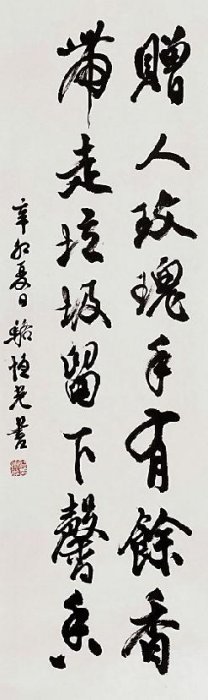 贈人玫瑰手有餘香
帶走垃圾留下馨香
辛卯夏日駱恒光書